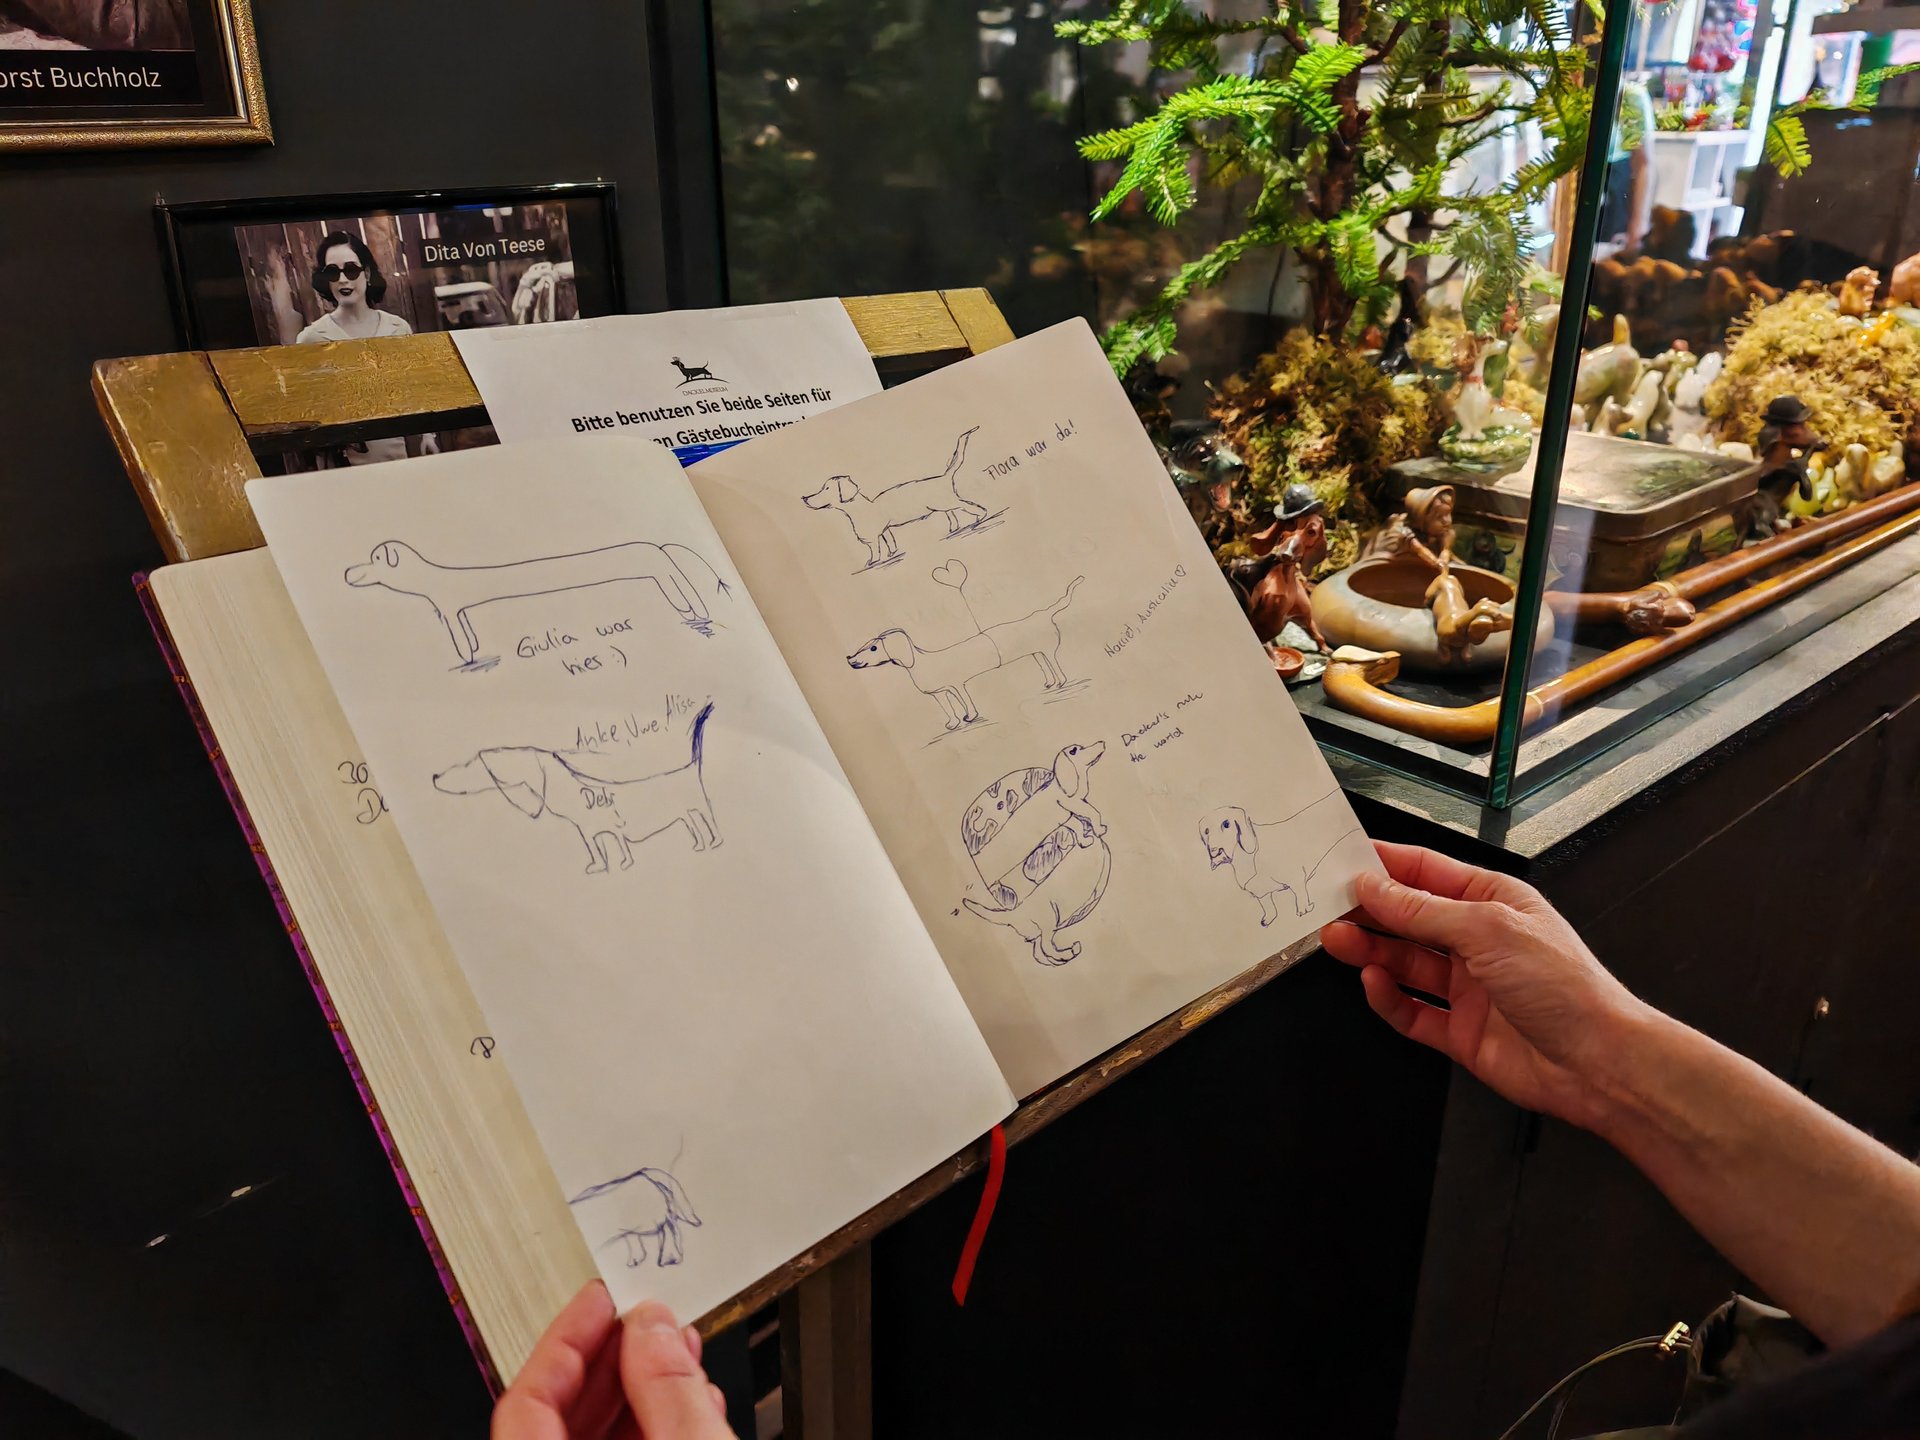 orst Buchholz
Dita Von Teese
DACKELMUSEUM
Bitte benutzen Sie beide Seiten für
en Gästebucheintra
Giulia war
hier :)
Anke, Uwe, Alisa
Flora war da!
Harriet, Australia
Dackel's rule
the world
30